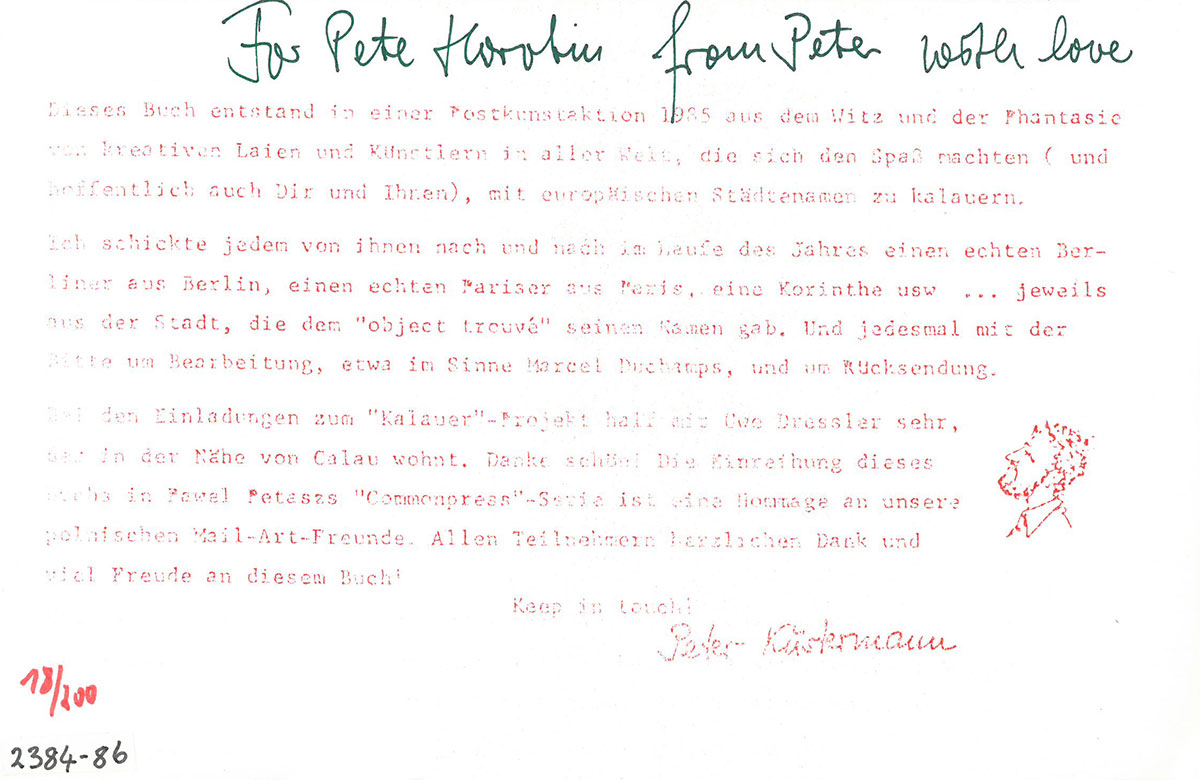 For Pete Horobin from Peter with love
Dieses Buch entstand in einer Postkunstaktion 1985 aus dem Witz und der Phantasie
von kreativen Laien und Künstlern in aller Welt, die sich den Spaß machten ( und
hoffentlich auch Dir und Ihnen), mit europäischen Städtenamen zu kalauern.
Ich schickte jedem von ihnen nach und nach im Laufe des Jahres einen echten Ber-
liner aus Berlin, einen echten Pariser aus Paris, eine Korinthe usw ... jeweils
aus der Stadt, die dem "object trouvé" seinen Namen gab. Und jedesmal mit der
Bitte um Bearbeitung, etwa im Sinne Marcel Duchamps, und um Rücksendung.
Bei den Einladungen zum "Kalauer"-Projekt half mir Uwe Dressler sehr,
der in der Nähe von Calau wohnt. Danke schön! Die Einreihung dieses
Buchs in Pawel Petaszs "Commonpress"-Serie ist eine Hommage an unsere
polnischen Mail-Art-Freunde. Allen Teilnehmern herzlichen Dank und
viel Freude an diesem Buch!
Keep in touch!
Peter Küstermann
18/200
2384-86